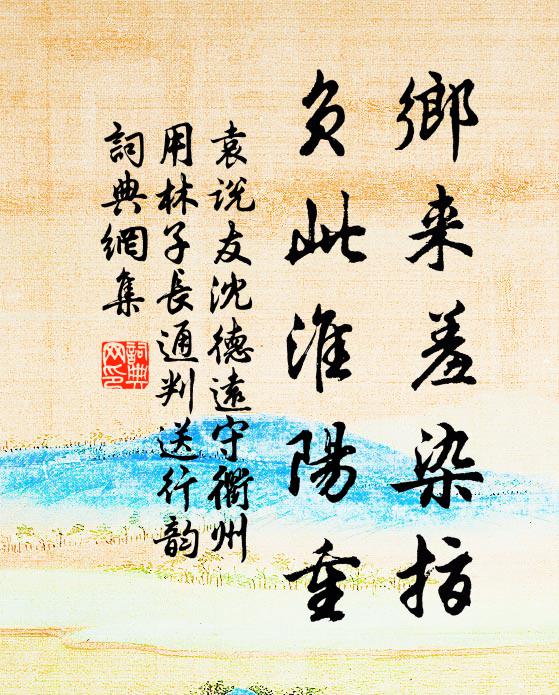 鄉来羞染指
负此淮陽重
袁説友沈德遠守衢州
用林子長通判送行韵
詞典網集
詞典网印